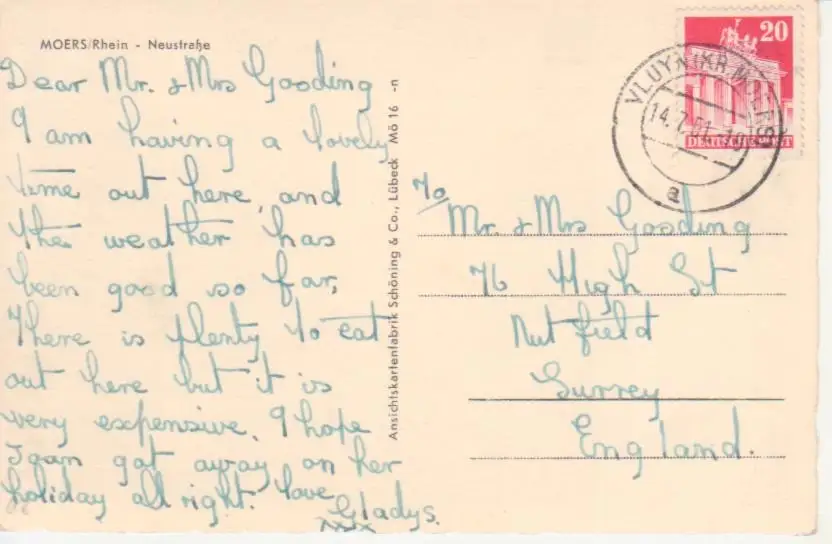 MOERS/Rhein - Neustraße
Dear Mr. & Mrs Gooding
I am having a lovely
time out here, and
the weather has
been good so far.
There is plenty to eat
out here but it is
very expensive. I hope
Joan got away on her
holiday all right. love
Gladys.
xxxx
Ansichtskartenfabrik Schöning & Co., Lübeck Mö 16 -n
20
DEUTSCHE POST
VLUYN (KR. MOERS)
14.7.51
a
To
Mr. & Mrs Gooding
76 High St
Nutfield
Surrey
England.